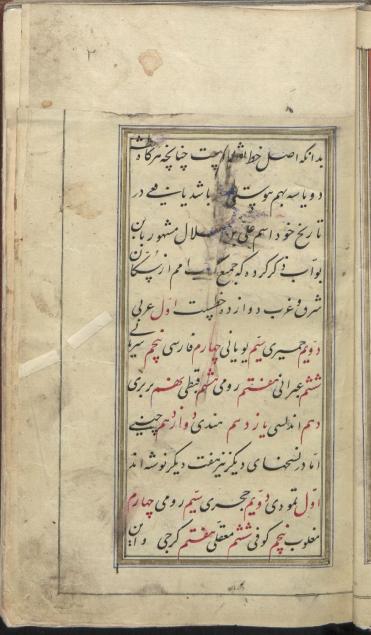 ۲
بدانکه اصل خط چنانچه هرگاه
دو یا سه بهم باشد یافعی در
تاریخ خود اسم علی بن هلال مشهور بابن
بواب ذکر کرده که جمیع امم از سکان
شرق و غرب دوازده خطست اول عربی
دویم حمیری سیم یونانی چهارم فارسی پنجم سریانی
ششم عبرانی هفتم رومی هشتم قبطی نهم بربری
دهم اندلسی یازدهم هندی دوازدهم چینی
اما در نسخهای دیگر نیز هفت دیگر نوشته اند
اول ثمودی دویم حجری سیم رومی چهارم
مغلوب پنجم کوفی ششم معقلی هفتم کرجی و این